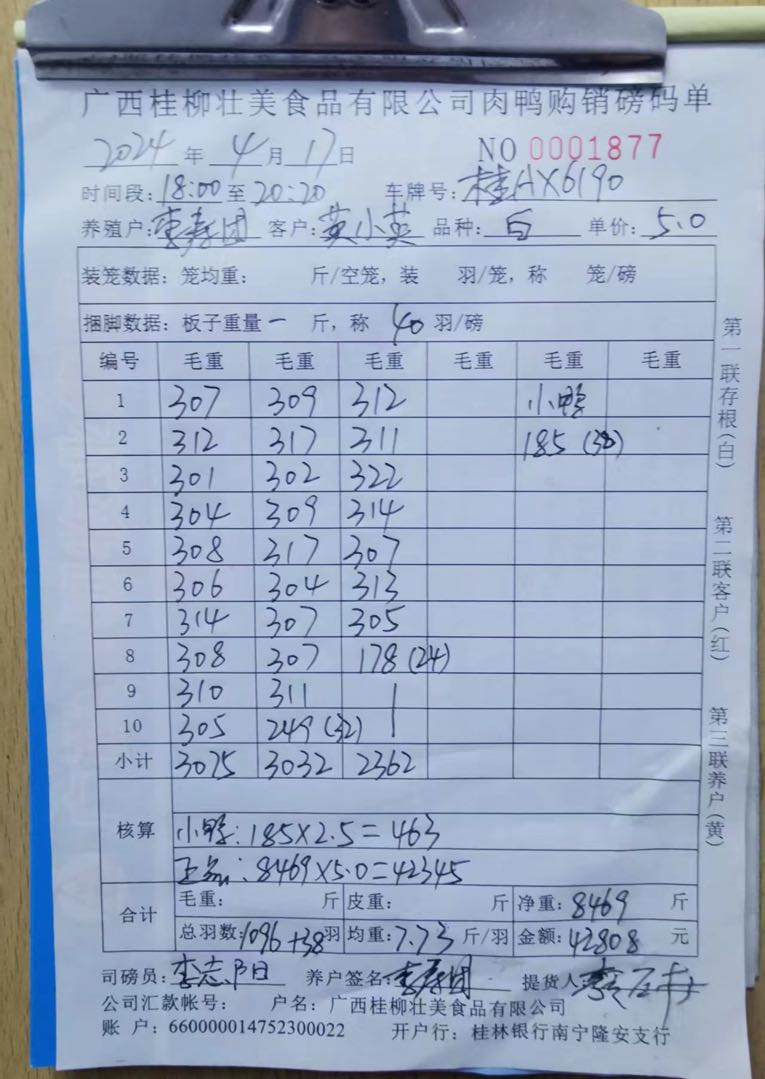 广西桂柳壮美食品有限公司肉鸭购销磅码单
2024 年 4 月 17 日 NO 0001877
时间段: 18:00 至 20:20 车牌号: 桂AX6190
养殖户: 李寿团 客户: 黄小英 品种: 白 单价: 5.0
装笼数据: 笼均重: 斤/空笼, 装 羽/笼, 称 笼/磅
捆脚数据: 板子重量 一 斤, 称 40 羽/磅
编号 毛重 毛重 毛重 毛重 毛重 毛重
1 307 309 312 小鸭
2 312 317 311 185 (38)
3 301 302 322
4 304 309 314
5 308 317 307
6 306 304 313
7 314 307 305
8 308 307 178 (24)
9 310 311
10 305 249 (32)
小计 3075 3032 2362
核算 小鸭: 185×2.5=463
正品: 8469×5.0=42345
合计 毛重: 斤 皮重: 斤 净重: 8469 斤
总羽数: 1096+38 羽 均重: 7.73 斤/羽 金额: 42808 元
司磅员: 李志阳 养户签名: 李寿团 提货人
公司汇款帐号: 户名: 广西桂柳壮美食品有限公司
账 户: 660000014752300022 开户行: 桂林银行南宁隆安支行
第一联存根(白)
第二联客户(红)
第三联养户(黄)